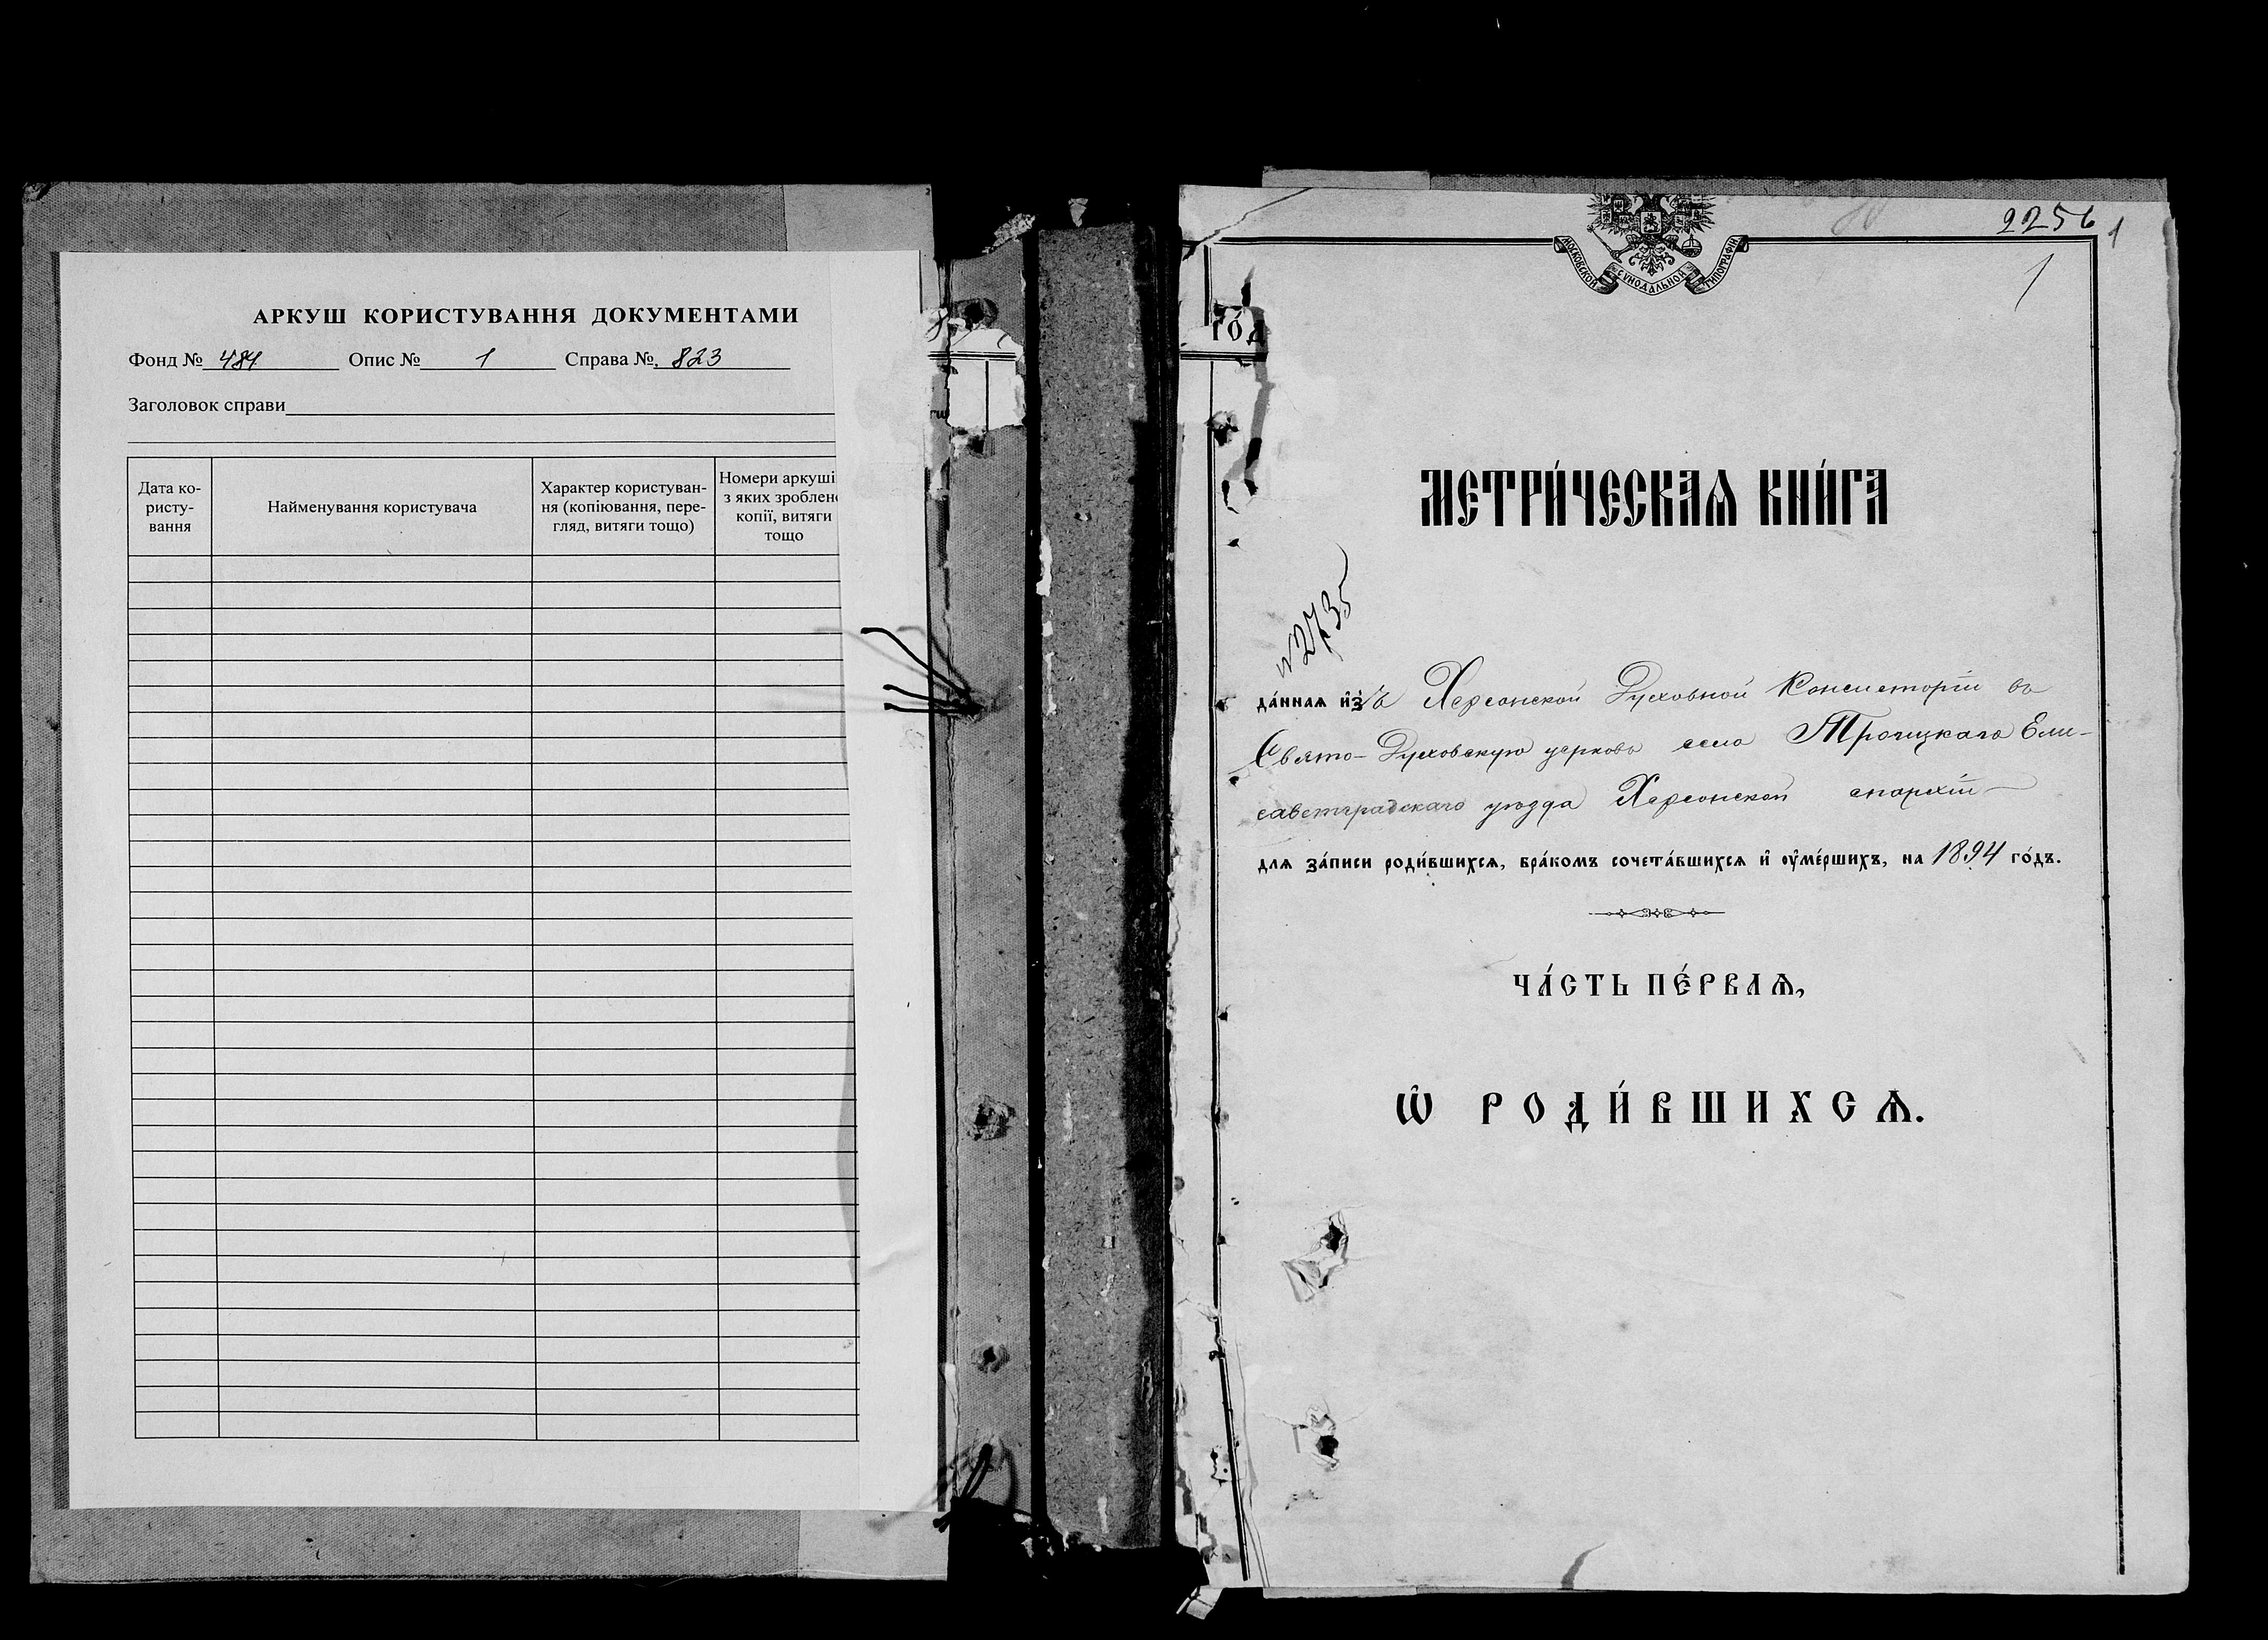 АРКУШ КОРИСТУВАННЯ ДОКУМЕНТАМИ
Фонд № 484 Опис № 1 Справа № 823
Заголовок справи
Дата ко-
ристу-
вання
Найменування користувача
Характер користуван-
ня (копіювання, пере-
гляд, витяги тощо)
Номери аркуші
з яких зроблено
копії, витяги
тощо
год
МОСКОВСКОЙ СѴНОДАЛЬНОЙ ТИПОГРАФІИ
2256 1
1
МЕТРИ́ЧЕСКАѦ КНИ́ГА
№ 2735
да́ннаѧ и҆зъ Херсонской Духовной Консисторіи въ
Свято-Духовскую церковь села Троицкаго Ели-
саветградскаго уѣзда Херсонской епархіи
длѧ за́писи роди́вшихсѧ, бра́комъ сочета́вшихсѧ и҆ оу҆ме́ршихъ, на 1894 го́дъ.
ЧА́СТЬ ПЕ́РВАѦ,
Ѽ РОДИ́ВШИХСѦ.